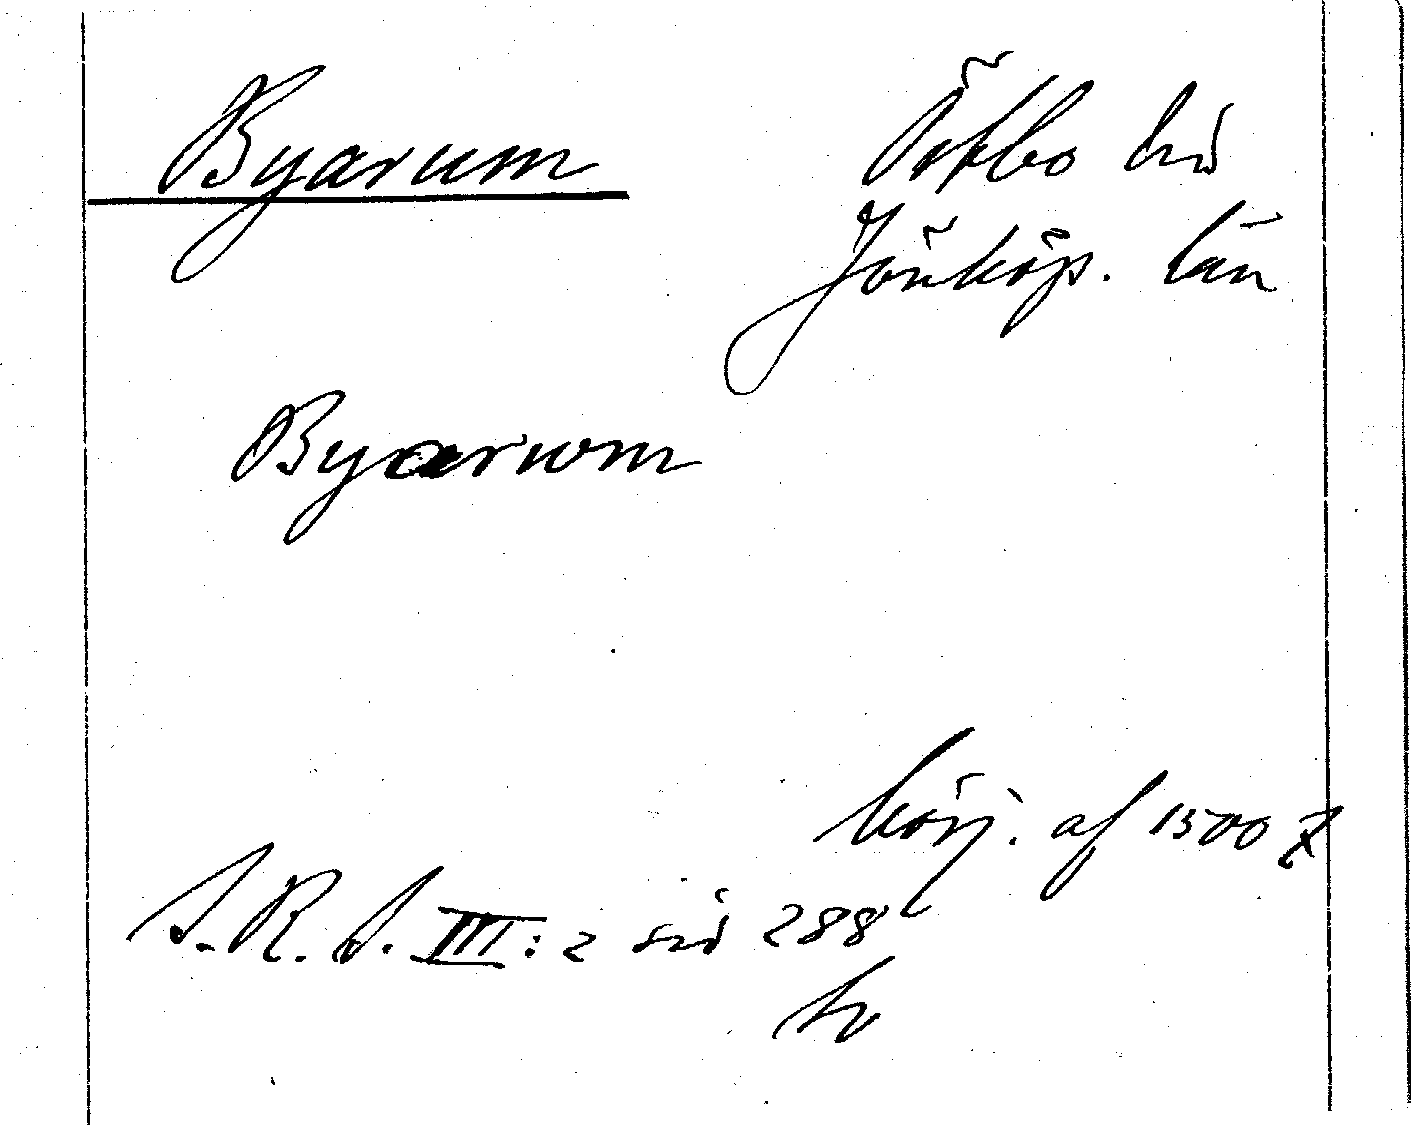 Byarum
Östbo hd
Jönköp. län
Byarum
börj. af 1500 t
S. R. S. III: 2 sid 288